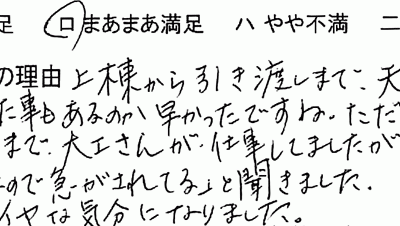 足 ロ まあまあ満足 ハ やや不満 ニ
の理由 上棟から引き渡しまで、天
た事もあるのか早かったですね。ただ
まで、大工さんが、仕事してましたが
ので急がされてる」と聞きました。
イヤな気分になりました。